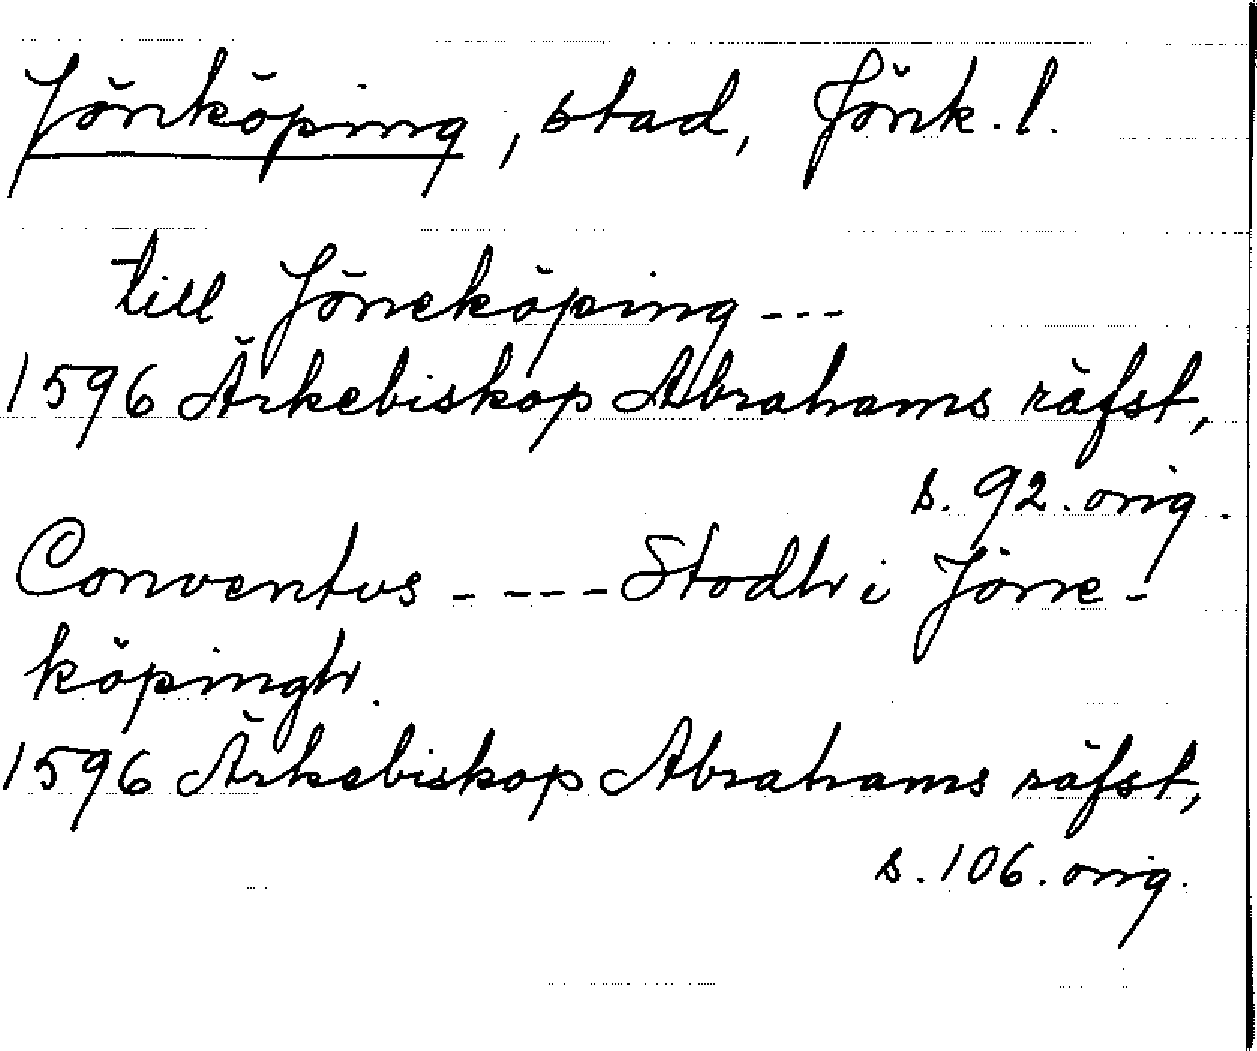 Jönköping, stad, Jönk. l.
till Jöneköping ---
1596 Ärkebiskop Abrahams räfst,
s. 92. orig.
Conventus ---- Stodh i Jöne-
köpingh.
1596 Ärkebiskop Abrahams räfst,
s. 106. orig.